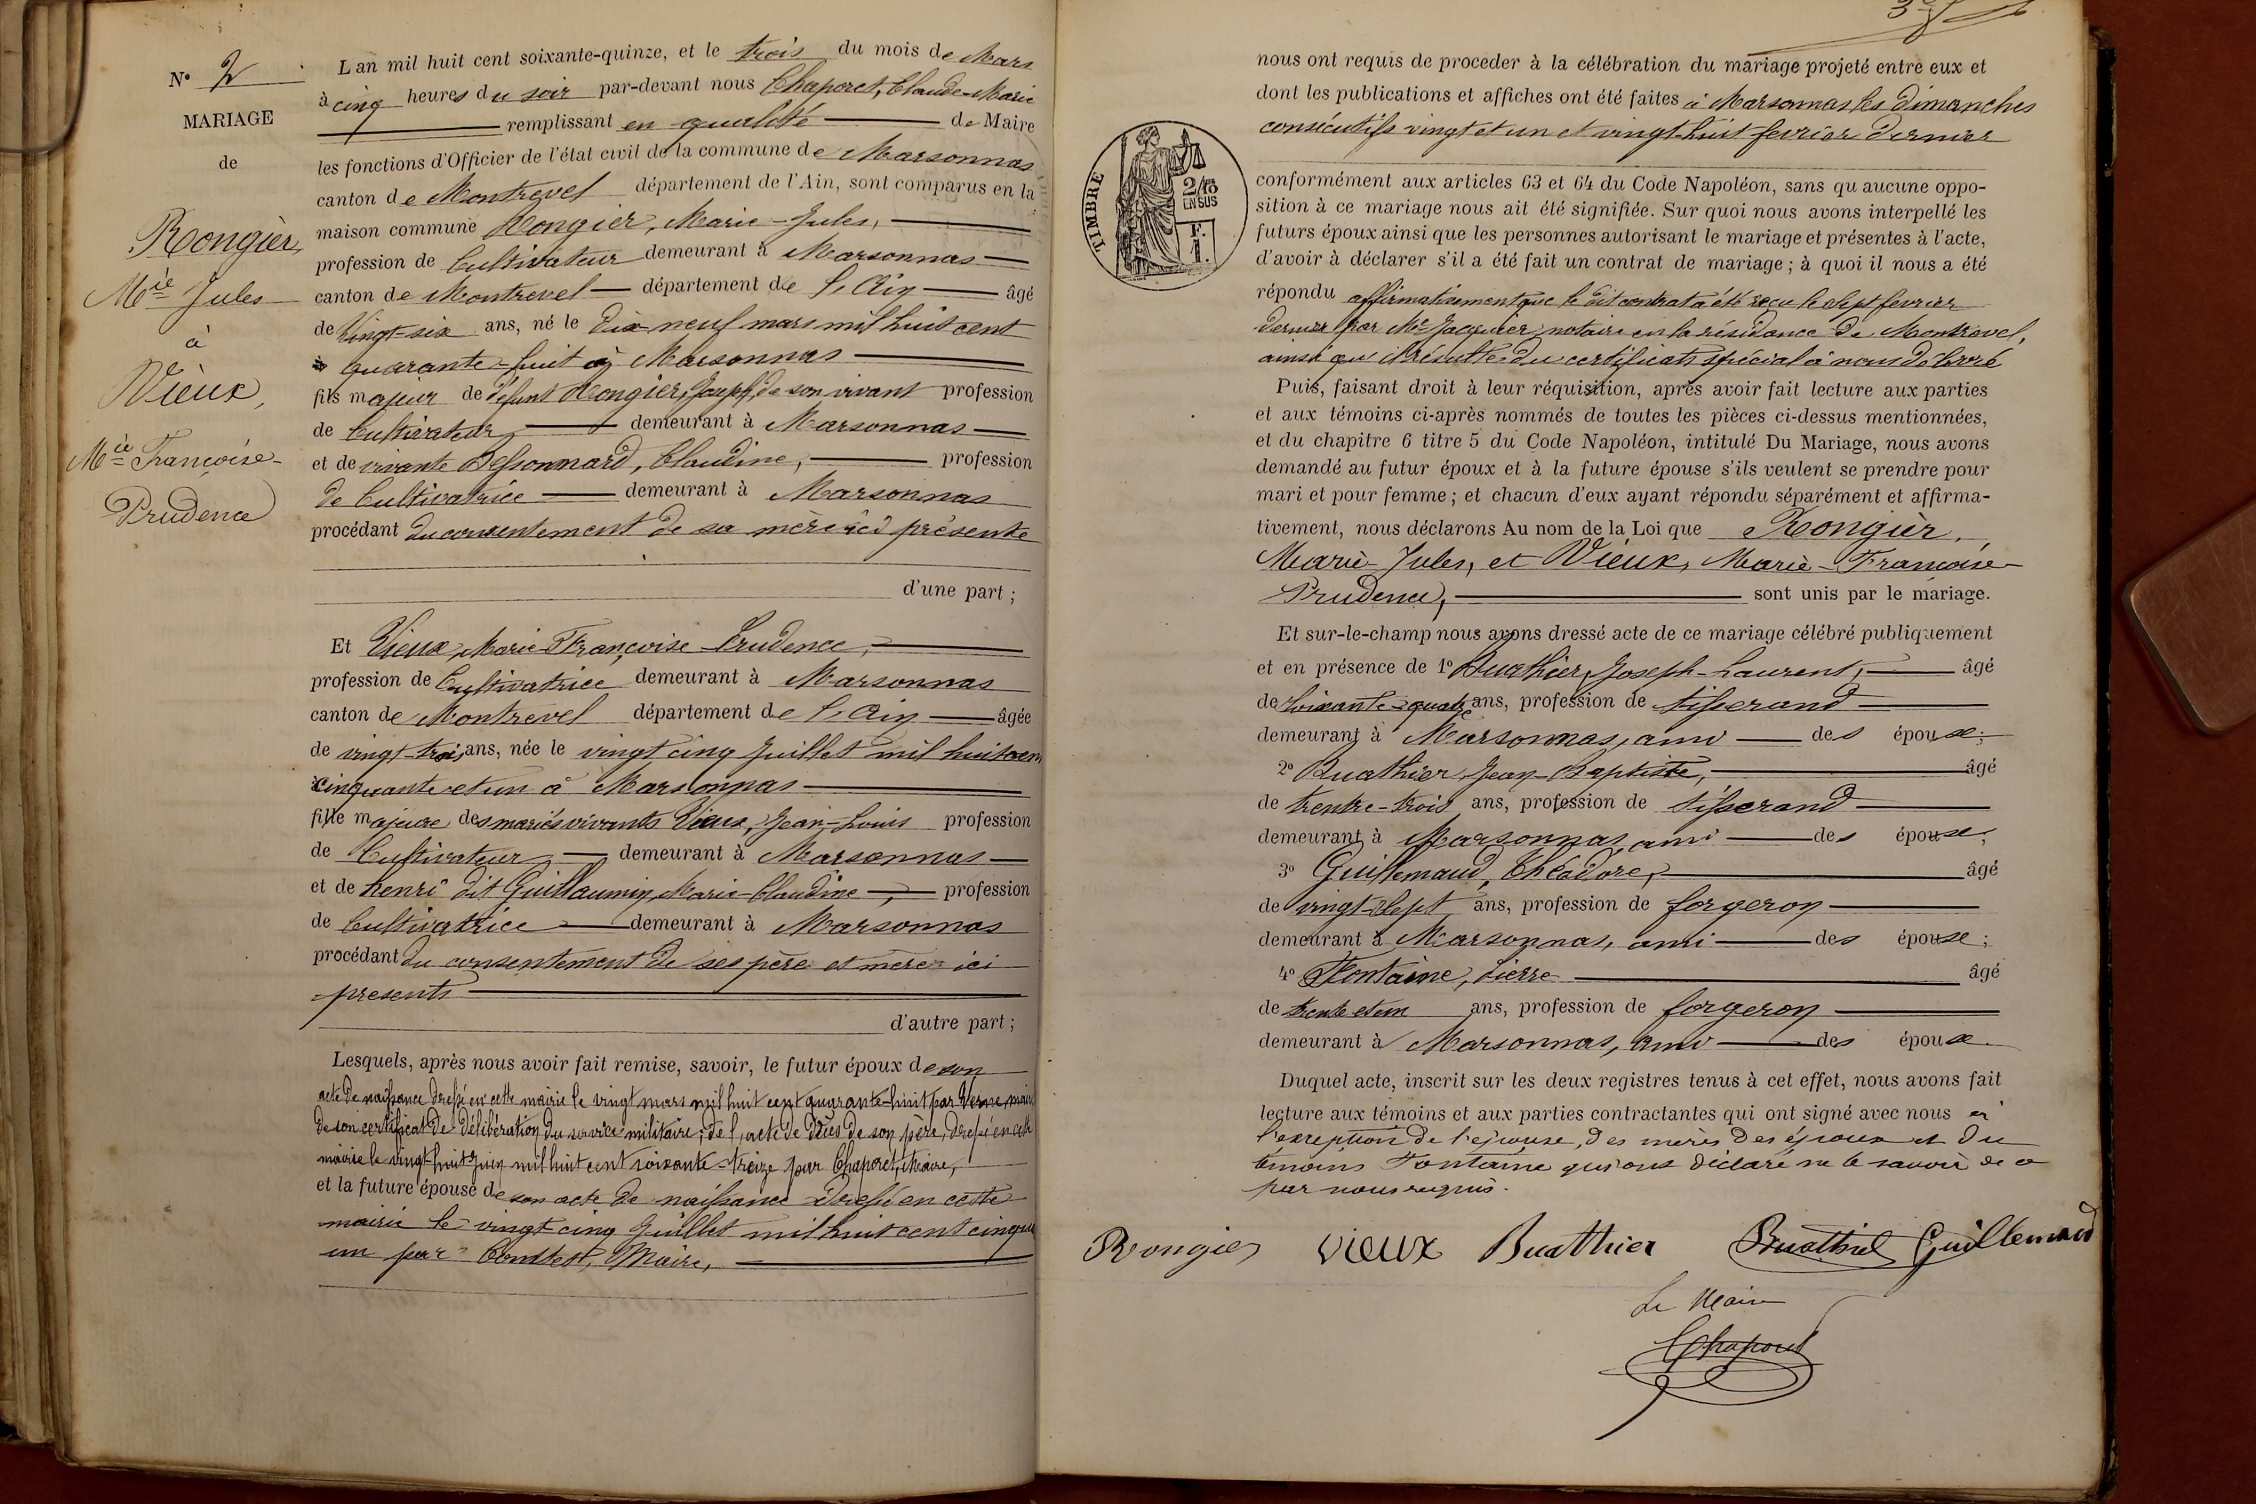 N° 2
MARIAGE
de
Rongier,
Mie Jules
à
Vieux,
Mie Françoise
Prudence
L'an mil huit cent soixante-quinze, et le trois du mois de Mars
à cinq heures du soir par-devant nous Chaporet, Claude-Marie
remplissant en qualité de Maire
les fonctions d'Officier de l'état civil de la commune de Marsonnas
canton de Montrevel département de l'Ain, sont comparus en la
maison commune Rongier, Marie-Jules,
profession de Cultivateur demeurant à Marsonnas
canton de Montrevel département de l'Ain âgé
de vingt-six ans, né le dix-neuf mars mil huit cent
quarante-huit à Marsonnas
fils majeur de défunt Rongier, Joseph, de son vivant profession
de Cultivateur demeurant à Marsonnas
et de vivante Bessonnard, Claudine, profession
de Cultivatrice demeurant à Marsonnas
procédant du consentement de sa mère ici présente
d'une part ;
Et Vieux, Marie-Françoise-Prudence,
profession de Cultivatrice demeurant à Marsonnas
canton de Montrevel département de l'Ain âgée
de vingt-trois ans, née le vingt cinq Juillet mil huit cent
cinquante et un à Marsonnas
fille majeure des mariés vivants Vieux, Jean-Louis profession
de Cultivateur demeurant à Marsonnas
et de henri dit Guillaumin, Marie-Claudine, profession
de Cultivatrice demeurant à Marsonnas
procédant du consentement de ses père et mère ici
présents
d'autre part ;
Lesquels, après nous avoir fait remise, savoir, le futur époux de son
acte de naissance dressé en cette mairie le vingt mars mil huit cent quarante-huit par Verne, maire
de son certificat de délibération du service militaire ; de l'acte de décès de son père, dressé en cette
mairie le vingt-huit Juin mil huit cent soixante-treize par Chaporet, Maire,
et la future épouse de son acte de naissance dressé en cette
mairie le vingt cinq Juillet mil huit cent cinqu
un par Maire,
nous ont requis de proceder à la célébration du mariage projeté entre eux et
dont les publications et affiches ont été faites à Marsonnas les dimanches
consécutifs vingt et un et vingt-huit fevrier dernier
TIMBRE
2/10
EN SUS
F.
1.
conformément aux articles 63 et 64 du Code Napoléon, sans qu'aucune oppo-
sition à ce mariage nous ait été signifiée. Sur quoi nous avons interpellé les
futurs époux ainsi que les personnes autorisant le mariage et présentes à l'acte,
d'avoir à déclarer s'il a été fait un contrat de mariage ; à quoi il nous a été
répondu affirmativement que le dit contrat a été reçu le sept fevrier
dernier par Me notaire en la résidance de Montrevel,
ainsi qu'il résulte du certificat spécial à nous délivré
Puis, faisant droit à leur réquisition, après avoir fait lecture aux parties
et aux témoins ci-après nommés de toutes les pièces ci-dessus mentionnées,
et du chapitre 6 titre 5 du Code Napoléon, intitulé Du Mariage, nous avons
demandé au futur époux et à la future épouse s'ils veulent se prendre pour
mari et pour femme ; et chacun d'eux ayant répondu séparément et affirma-
tivement, nous déclarons Au nom de la Loi que Rongier,
Marie-Jules, et Vieux, Marie-Françoise-
Prudence, sont unis par le mariage.
Et sur-le-champ nous avons dressé acte de ce mariage célébré publiquement
et en présence de 1° Buathier, Joseph-Laurent, âgé
de soixante-quatre ans, profession de tisserand
demeurant à Marsonnas, ami des époux ;
2° Buathier, Jean-Baptiste, âgé
de trentre-trois ans, profession de tisserand
demeurant à Marsonnas, ami des époux ;
3° Guillemaud, Théodore, âgé
de vingt-sept ans, profession de forgeron
demeurant à Marsonnas, ami des époux ;
4° Fontaine, Pierre âgé
de trente et un ans, profession de forgeron
demeurant à Marsonnas, ami des époux.
Duquel acte, inscrit sur les deux registres tenus à cet effet, nous avons fait
lecture aux témoins et aux parties contractantes qui ont signé avec nous à
l'exception de l'épouse, des mères des époux et du
témoins Fontaine qui ont déclaré ne le savoir de ce
par nous requis.
Rongier Vieux Buathier Buathier Guillemaud
Le Maire
Chaporet